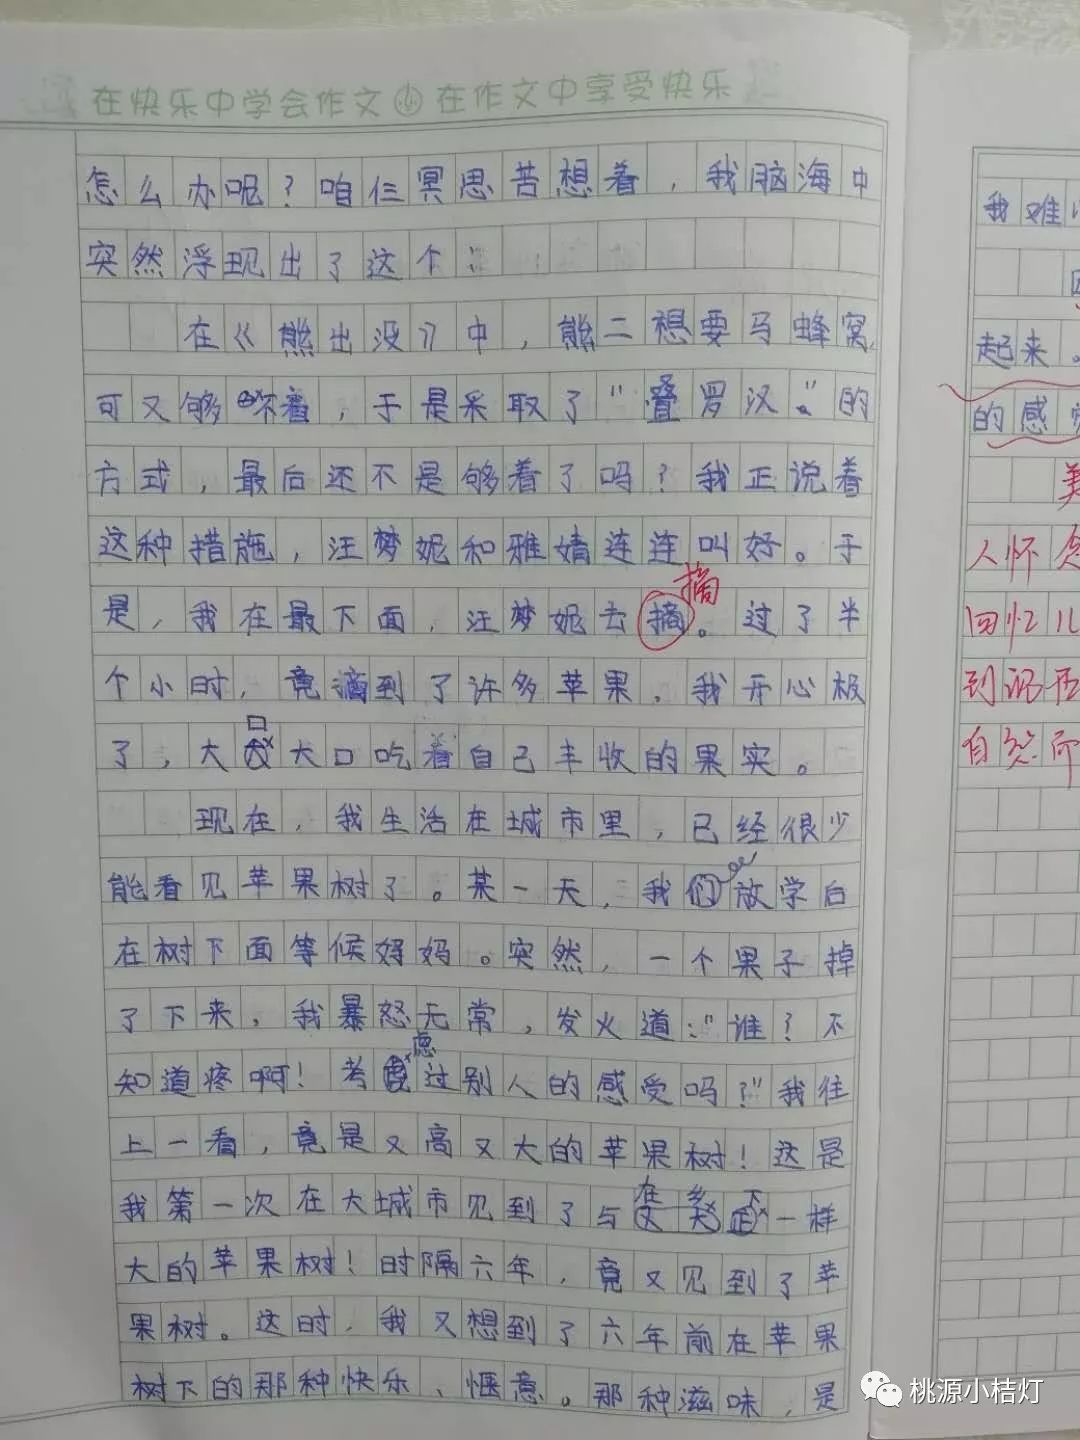 在快乐中学会作文 在作文中享受快乐
怎么办呢？咱仨冥思苦想着，我脑海中
突然浮现出了这个：
在《熊出没》中，熊二想要马蜂窝，
可又够不着，于是采取了“叠罗汉”的
方式，最后还不是够着了吗？我正说着
这种措施，汪梦妮和雅婧连连叫好。于
摘
是，我在最下面，汪梦妮去摘。过了半
个小时，竟滴到了许多苹果，我开心极
口
了，大大口吃着自己丰收的果实。
现在，我生活在城市里，已经很少
能看见苹果树了。某一天，我们放学后
在树下面等候妈妈。突然，一个果子掉
了下来，我暴怒无常，发火道：“谁？不
虑
知道疼啊！考过别人的感受吗？”我往
上一看，竟是又高又大的苹果树！这是
在乡下
我第一次在大城市见到了与一样
大的苹果树！时隔六年，竟又见到了苹
果树。这时，我又想到了六年前在苹果
树下的那种快乐、惬意。那种滋味，是
我难
起来。
的感
美
人怀念
回忆儿
到
自然而
桃源小桔灯